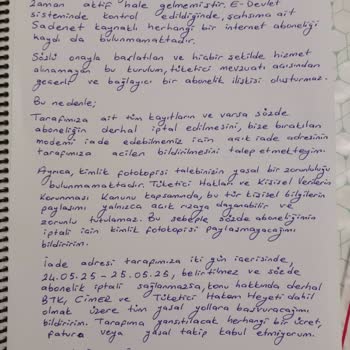 zaman aktif hale gelmemiştir. E-Devlet
sisteminde kontrol edildiğinde, şahsıma ait
Sadenet kaynaklı herhangi bir internet aboneliği
kaydı da bulunmamaktadır.
Sözlü onayla başlatılan ve hiçbir şekilde hizmet
alınamayan bu kurulum, tüketici mevzuatı açısından
geçerli ve bağlayıcı bir abonelik ilişkisi oluşturmaz.
Bu nedenle;
Tarafımıza ait tüm kayıtların ve varsa sözde
aboneliğin derhal iptal edilmesini, bize bırakılan
modemi iade edebilmemiz için açık iade adresinin
tarafımıza acilen bildirilmesini talep etmekteyim.
Ayrıca, kimlik fotokopisi talebinizin yasal bir zorunluluğu
bulunmamaktadır. Tüketici Hakları ve Kişisel Verilerin
Korunması Kanunu kapsamında, bu tür kişisel bilgilerin
paylaşımı yalnızca açık rızaya dayanabilir ve
zorunlu tutulamaz. Bu sebeple sözde aboneliğimin
iptali için kimlik fotokopisi paylaşmayacağımı
bildiririm.
İade adresi tarafımıza iki gün içerisinde,
24.05.25 - 25.05.25, belirtilmez ve sözde
abonelik iptali sağlanmazsa, konu hakkında derhal
BTK, Cimer ve Tüketici Hakem Heyeti dahil
olmak üzere tüm yasal yollara başvuracağımı
bildiririm. Tarafıma yansıtılacak herhangi bir ücret,
fatura veya yasal takip kabul etmiyorum.